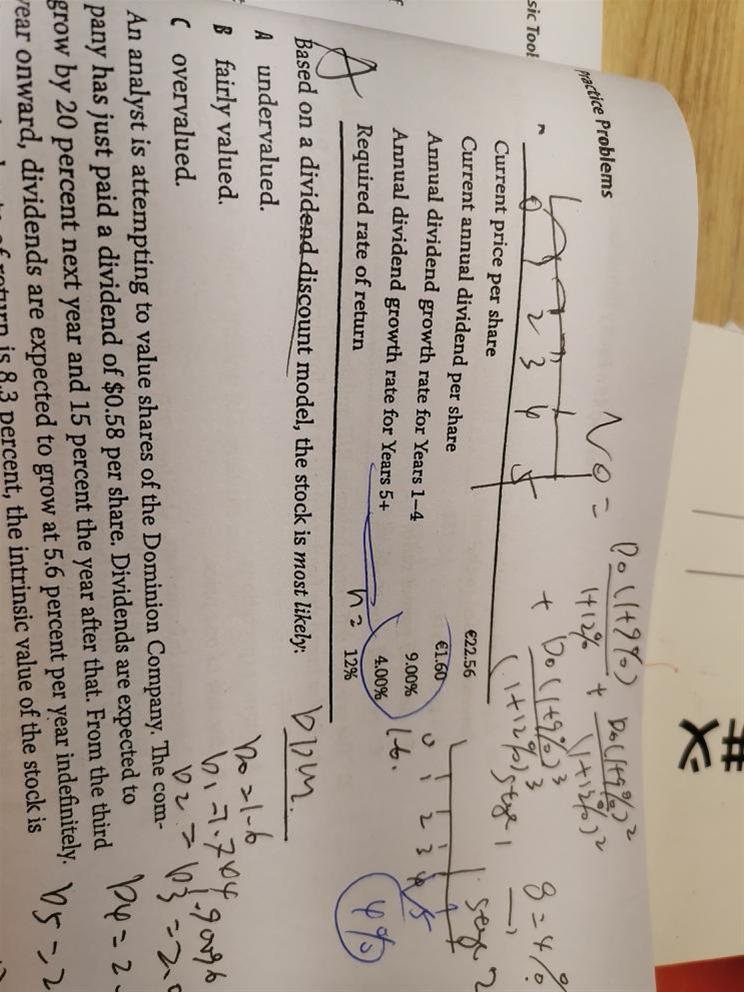 sic Tool
Practice Problems
N0 = D0(1+9%) / 1+12% + D0(1+9%)² / (1+12%)²
+ D0(1+9%)³ / (1+12%)³
g=4%
0 1 2 3 4 5
Current price per share €22.56
Current annual dividend per share €1.60
Annual dividend growth rate for Years 1–4 9.00%
Annual dividend growth rate for Years 5+ 4.00%
Required rate of return 12%
1.6.
0 1 2 3 4 5
4%
A
Based on a dividend discount model, the stock is most likely:
DDM.
A undervalued.
B fairly valued.
C overvalued.
An analyst is attempting to value shares of the Dominion Company. The com-
pany has just paid a dividend of $0.58 per share. Dividends are expected to
grow by 20 percent next year and 15 percent the year after that. From the third
year onward, dividends are expected to grow at 5.6 percent per year indefinitely.
of return is 8.3 percent, the intrinsic value of the stock is